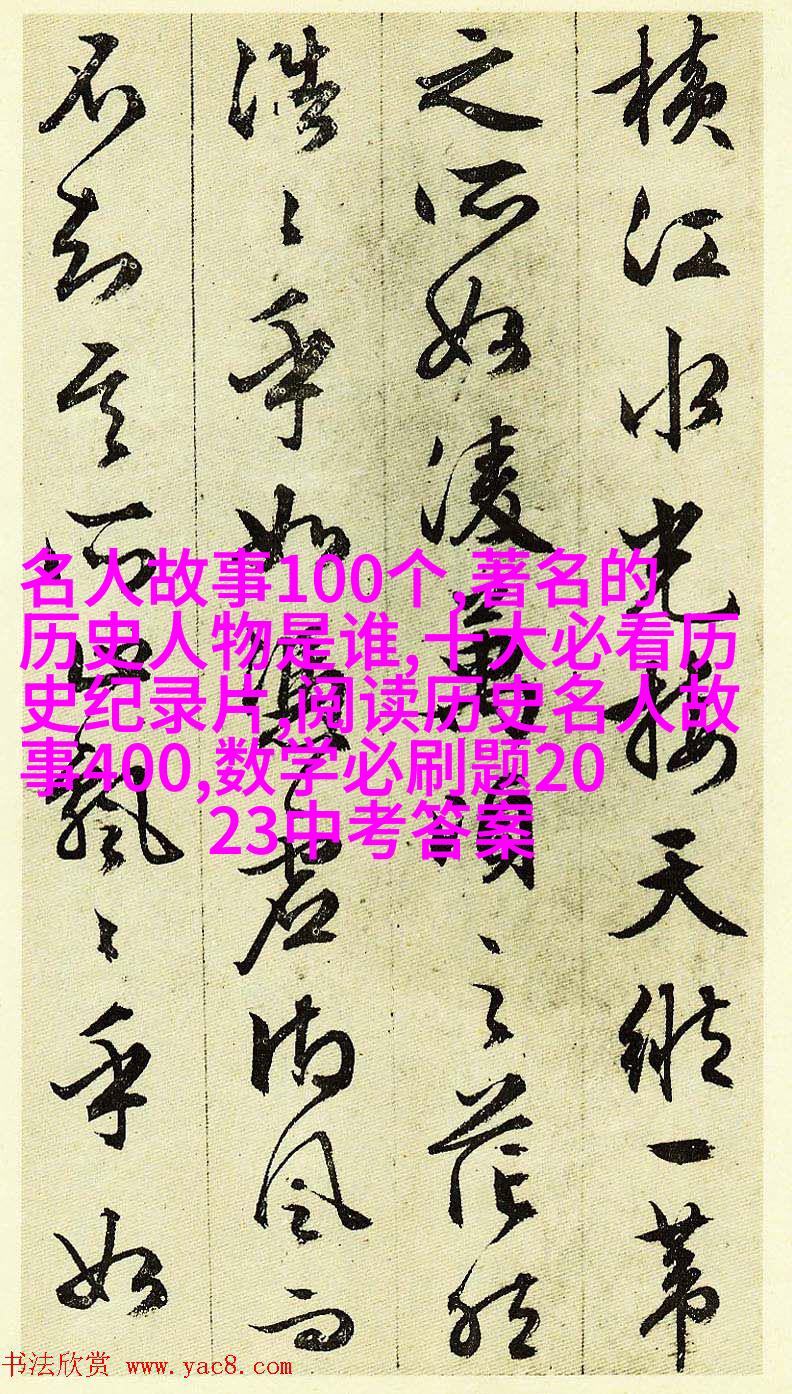 橫江水光接天縱一葦
之所如凌萬頃之茫然
浩〻乎如憑虛御風而
不知其所止飄〻乎如
名人故事100个,著名的
历史人物是谁,十大必看历
史纪录片,阅读历史名人故
事400,数学必刷题20
23中考答案
书法欣赏 www.yac8.com